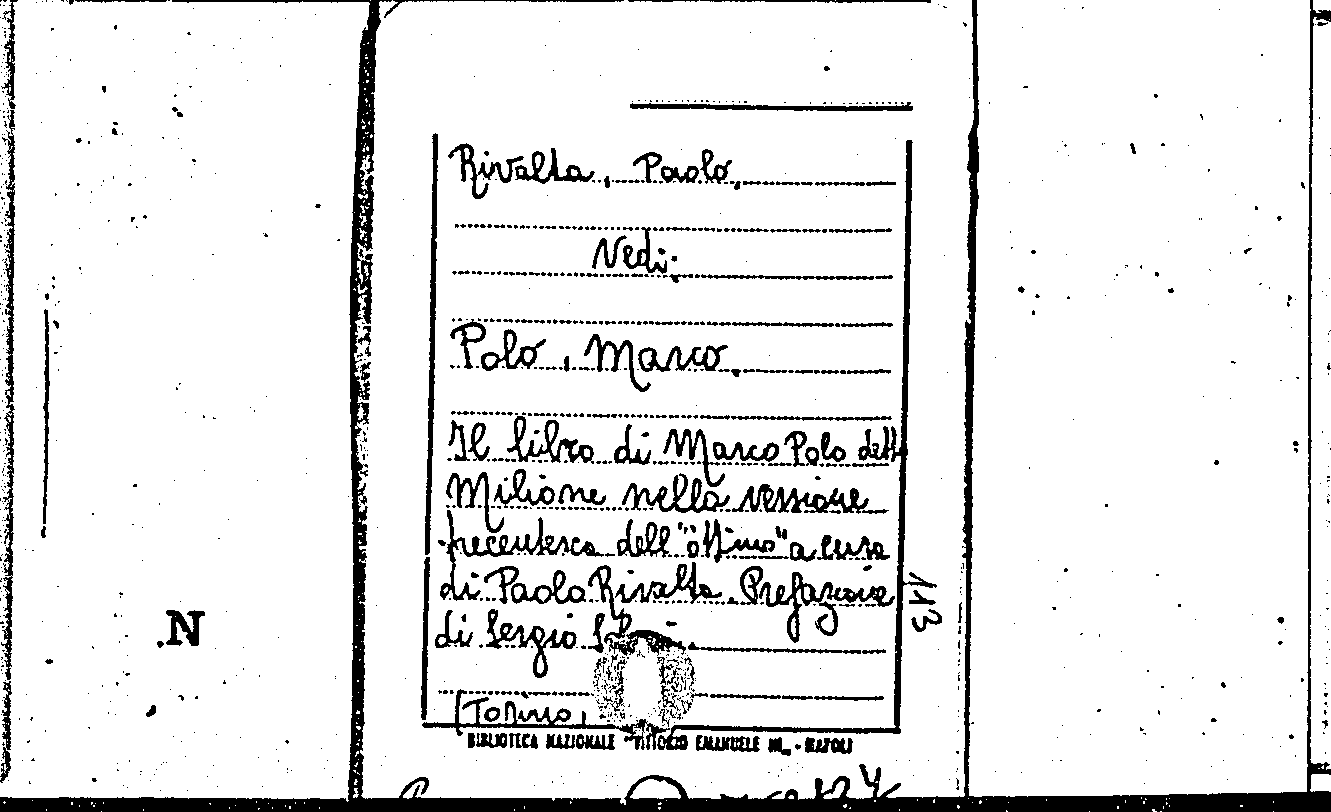 Rivalta, Paolo.
Vedi:
Polo, Marco.
Il libro di Marco Polo detto
Milione nella versione
trecentesca dell'"ottimo" a cura
di Paolo Rivalta. Prefazione
di Sergio
113
(Torino,
BIBLIOTECA NAZIONALE "VITTORIO EMANUELE III" - NAPOLI
N.